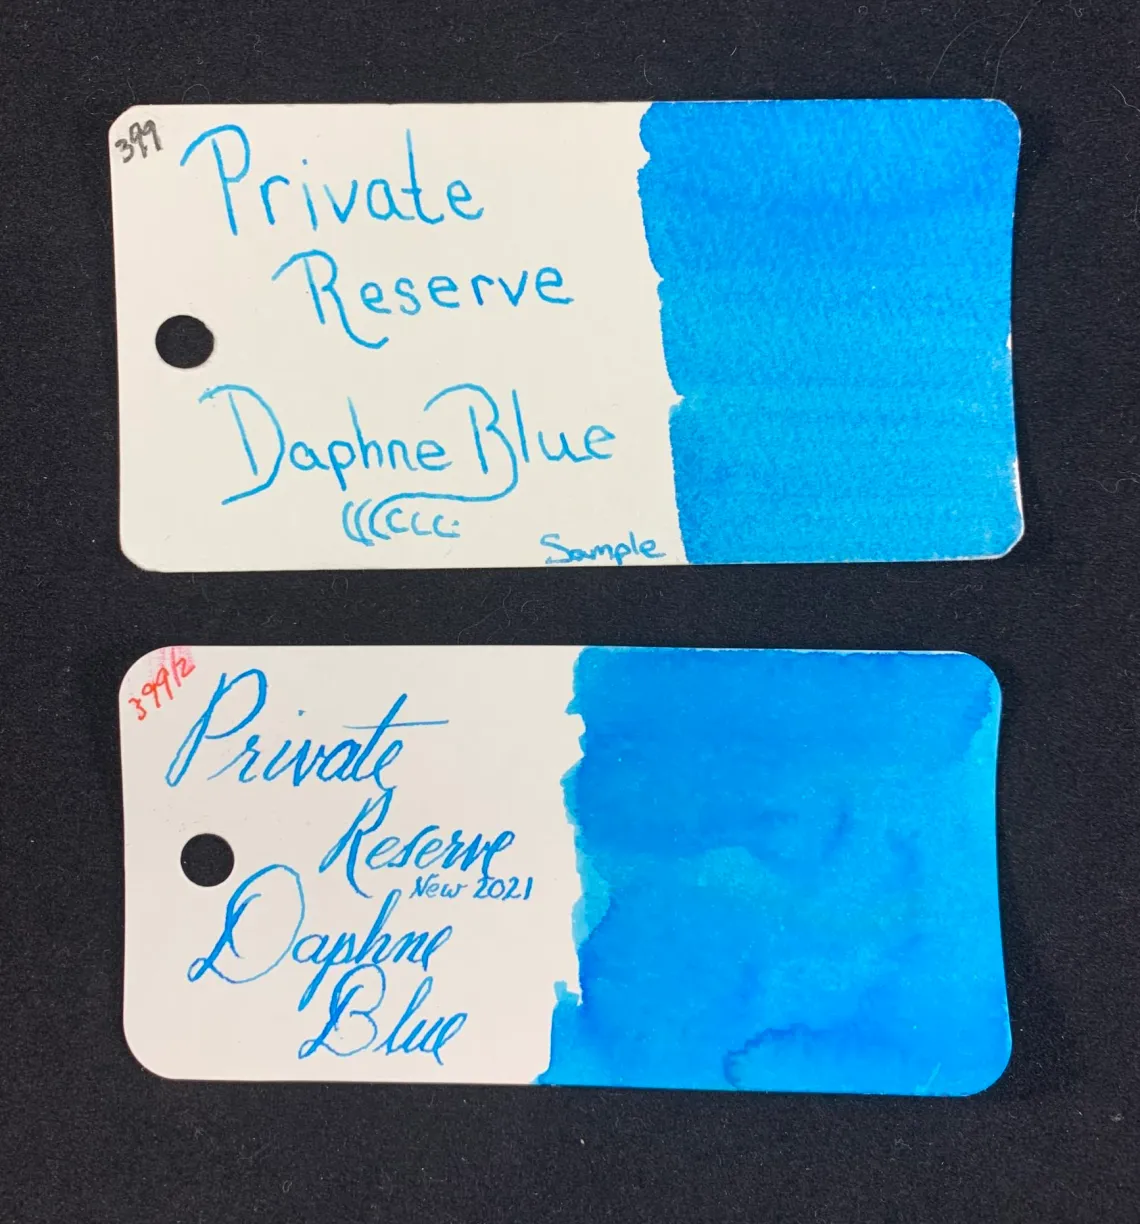 399
Private
Reserve
Daphne Blue
Sample
399/2
Private
Reserve
New 2021
Daphne
Blue